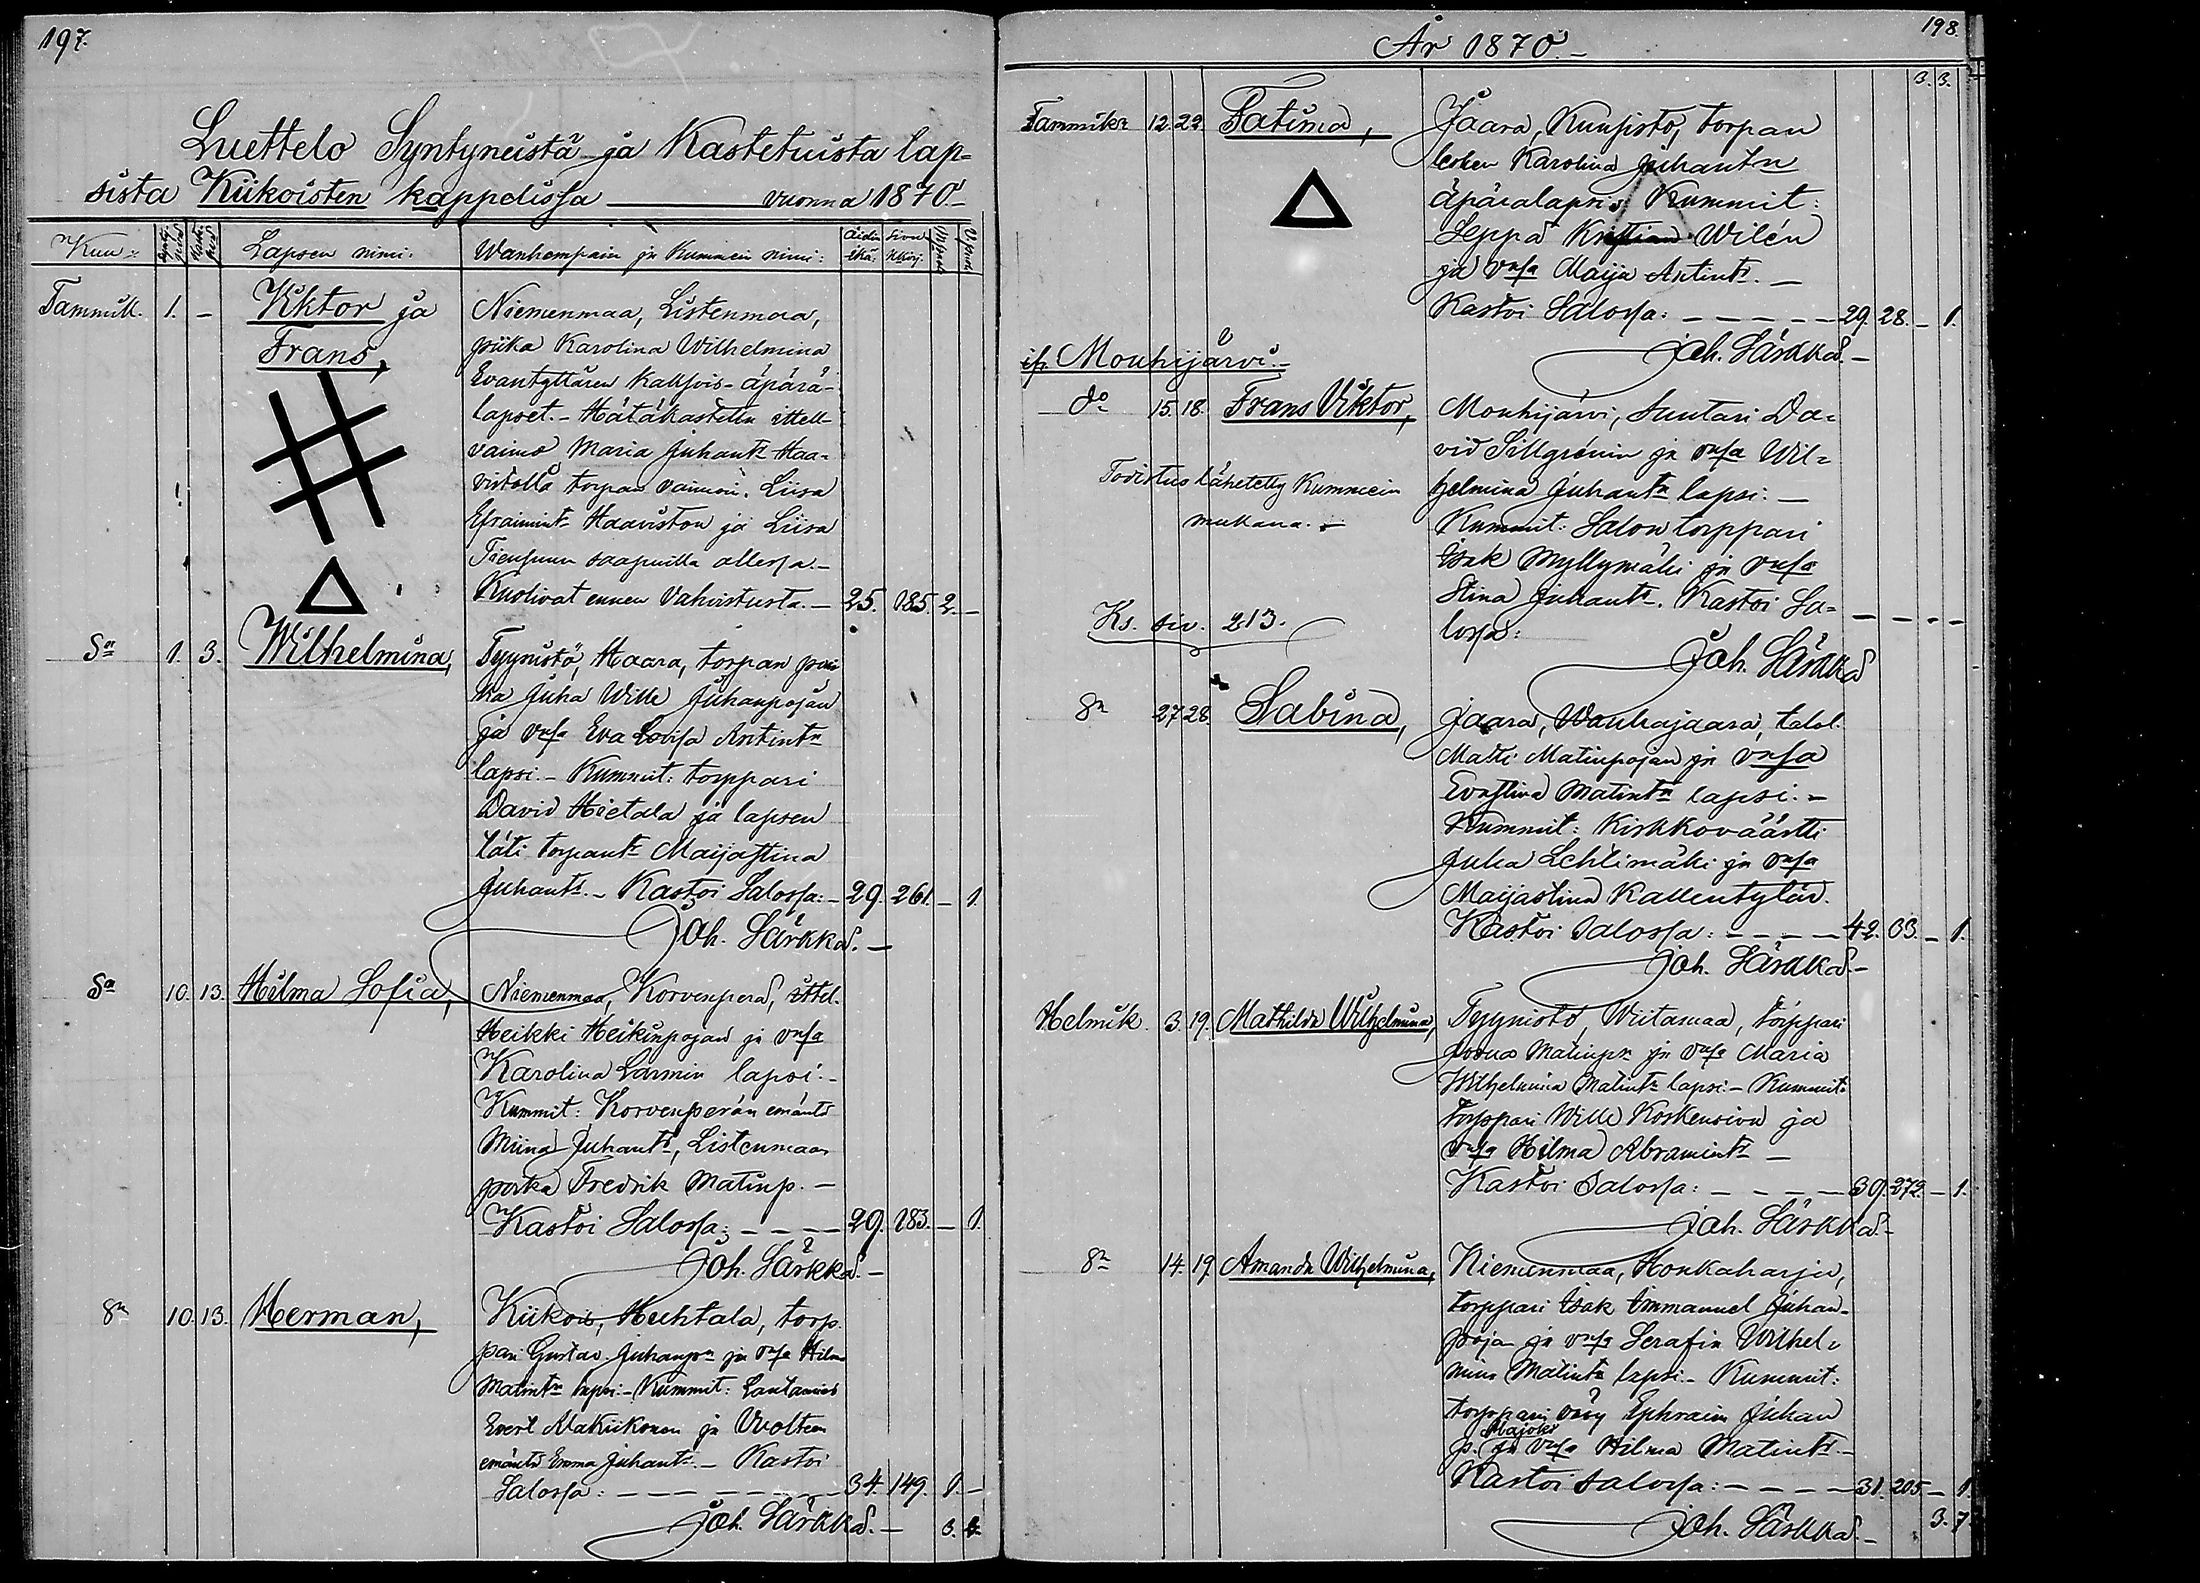 197.
Luettelo Syntyneistä ja Kastetuista lap=
sista Kiikoisten kappelissa vuonna 1870.-
Kuu= Lapsen nimi. Wanhempain ja Kummein nimi: Äidin ikä.
Tammik. 1. - Viktor ja Niemenmaa, Listenmaa,
Frans, piika Karolina Wilhelmina
Evantyttären äpärä-
lapset. - Hätäkastettu ittell-
vaimo Maria Juhant: Haa=
vistolla torpan vaimon. Liisa
Efraimint: Haaviston ja Liisa
saapuvilla ollessa. -
Kuolivat ennen vahvistusta. - 25. 185. 2. -
1. 3. Wilhelmina, Tyynistö, Haara, torpan poi
ka Juha Wille Juhanpojan
ja vmsa Eva Lovisa Antintn
lapsi. - Kummit: torppari
David Hietala ja lapsen
täti torpant: Maijastina
Juhant: - Kastoi Salossa: - 29. 261. - 1.
Joh. Särkkä. -
10. 13. Hilma Sofia, Niemenmaa, Korvenperä, ittel.
Heikki Heikinpojan ja vmsa
Karolina Larmin lapsi. -
Kummit: Korvenperän emäntä
Miina Juhant:, Listenmaan
poika Fredrik Matinp. -
Kastoi Salossa: - - - - 29. 183. - 1.
Joh. Särkkä. -
10. 13. Herman, Kiikois, Huhtala, torp.
pari Gustav Juhanpn ja vmsa Hilma
Matintn lapsi. - Kummit: Lautamies
Evert Alakiikonen ja Vuolteen
emäntä Emma Juhant: - Kastoi
Salossa: - - - - 34. 149. 1. -
Joh. Särkkä. - 3.
År 1870. -
198.
3. 3.
Tammik: 12. 22. Fatima, Jaara, Kuusisto, torpan
lesken Karolina Juhantn
äpäralapsi. Kummit:
Seppä Kristian Wilén
ja vmsa Maija Antint: -
Kastoi Salossa: - - - - 29. 28. - 1.
Joh. Särkkä. -
Mouhijärvi. -
do 15. 18. Frans Viktor, Mouhijärvi, Suutari Da=
vid Sillgrénin ja vmsa Wil=
helmina Juhantn lapsi. -
Todistus lähetetty Kummein
mukana. -
Kummit: Salon torppari
Isak Myllymäki ja vmsa
Stina Juhant:. Kastoi Sa=
lossa: - - - -
Ks. siv. 213.
Joh. Särkkä
27. 28. Sabina, Jaara, Wanhajaara, talol.
Matti Matinpojan ja vmsa
Evastina Matintn lapsi. -
Kummit: Kirkkoväärtti
Juha Lehtimäki ja vmsa
Maijastina Kallentytär.
Kastoi Salossa: - - - - 42. 33. - 1.
Joh. Särkkä. -
Helmik. 3. 19. Mathilda Wilhelmina, Tyynistö, Wiitamaa, torppari
Josua Matinpn ja vmsa Maria
Wilhelmina Matintn lapsi. - Kummit:
torppari Wille Koskensivu ja
vmsa Hilma Abramint: -
Kastoi Salossa: - - - - 39. 272. - 1.
Joh. Särkkä. -
14. 19. Amanda Wilhelmina, Niemenmaa, Honkaharju,
torppari Isak Immanuel Juhan-
pojan ja vmsa Serafia Wilhel=
mina Matintn lapsi. - Kummit:
torppari Ephraim Juhan
p. ja vmsa Hilma Matint: -
Kastoi Salossa: - - - - 31. 205 - 1.
Joh. Särkkä. - 3. 7.